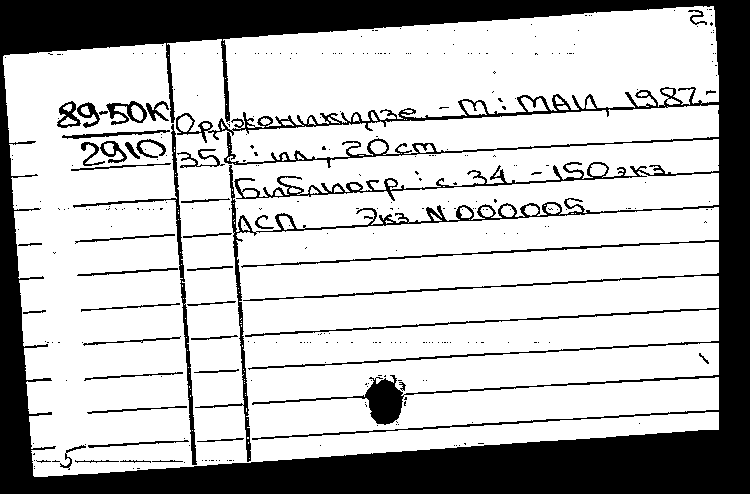 2.
89-50К Орджоникидзе. - М.: МАИ, 1987.-
2910 35 с. : ил. ; 20 cm.
Библиогр. : с. 34. - 150 экз.
ДСП. Экз. N 000005.
5